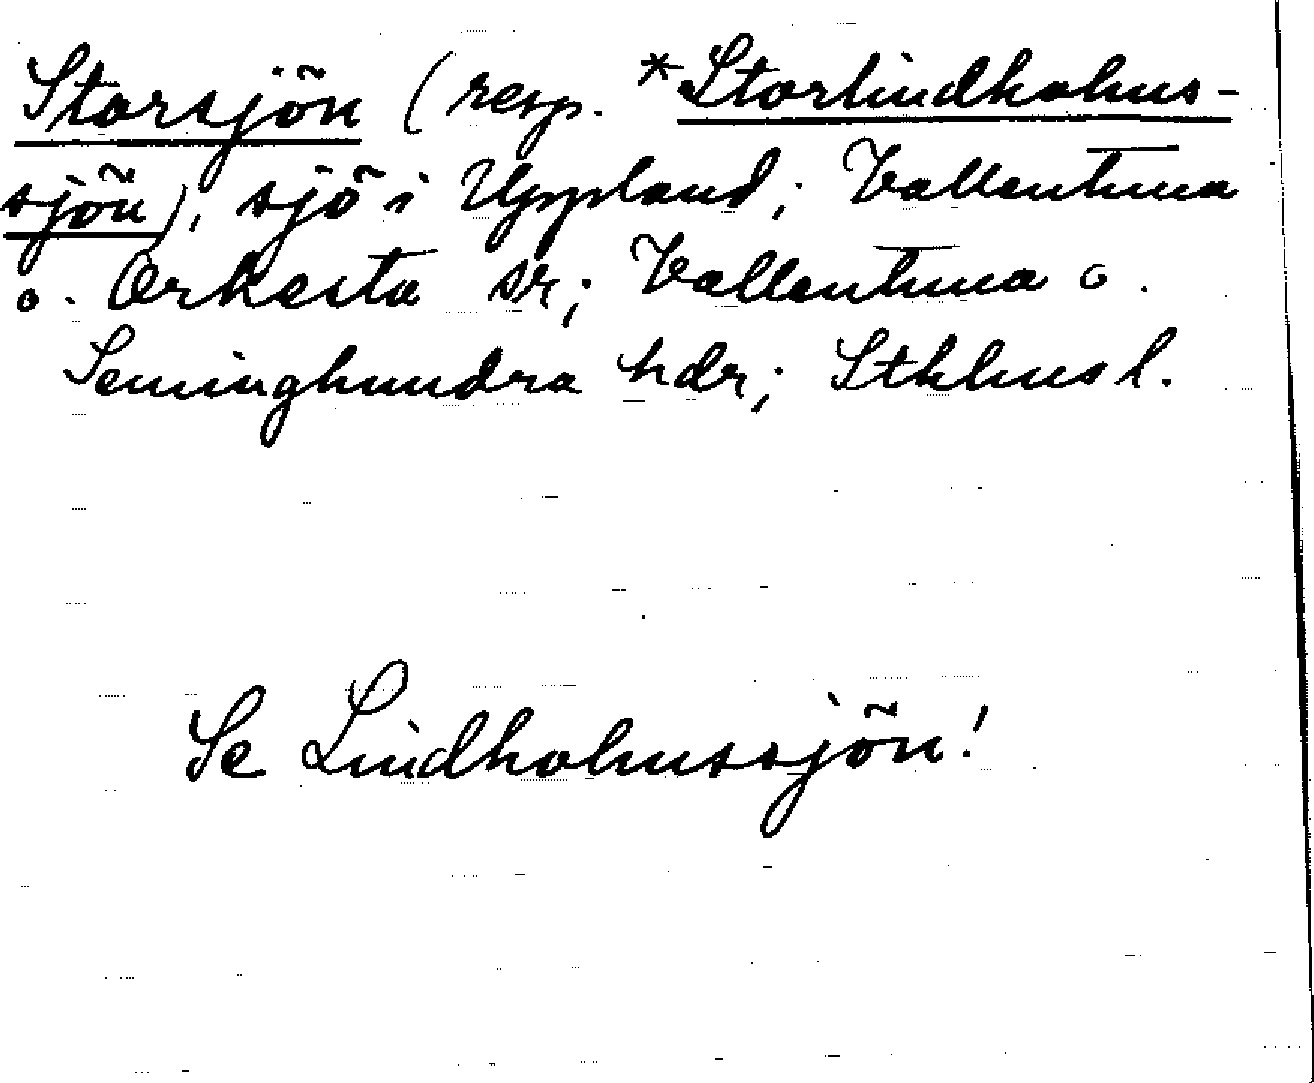 Storsjön (resp. *Storlindholms-
sjön), sjö i Uppland; Vallentuna
o. Orkesta sr; Vallentuna o.
Seminghundra hdr; Sthlms l.
Se Lindholmssjön!